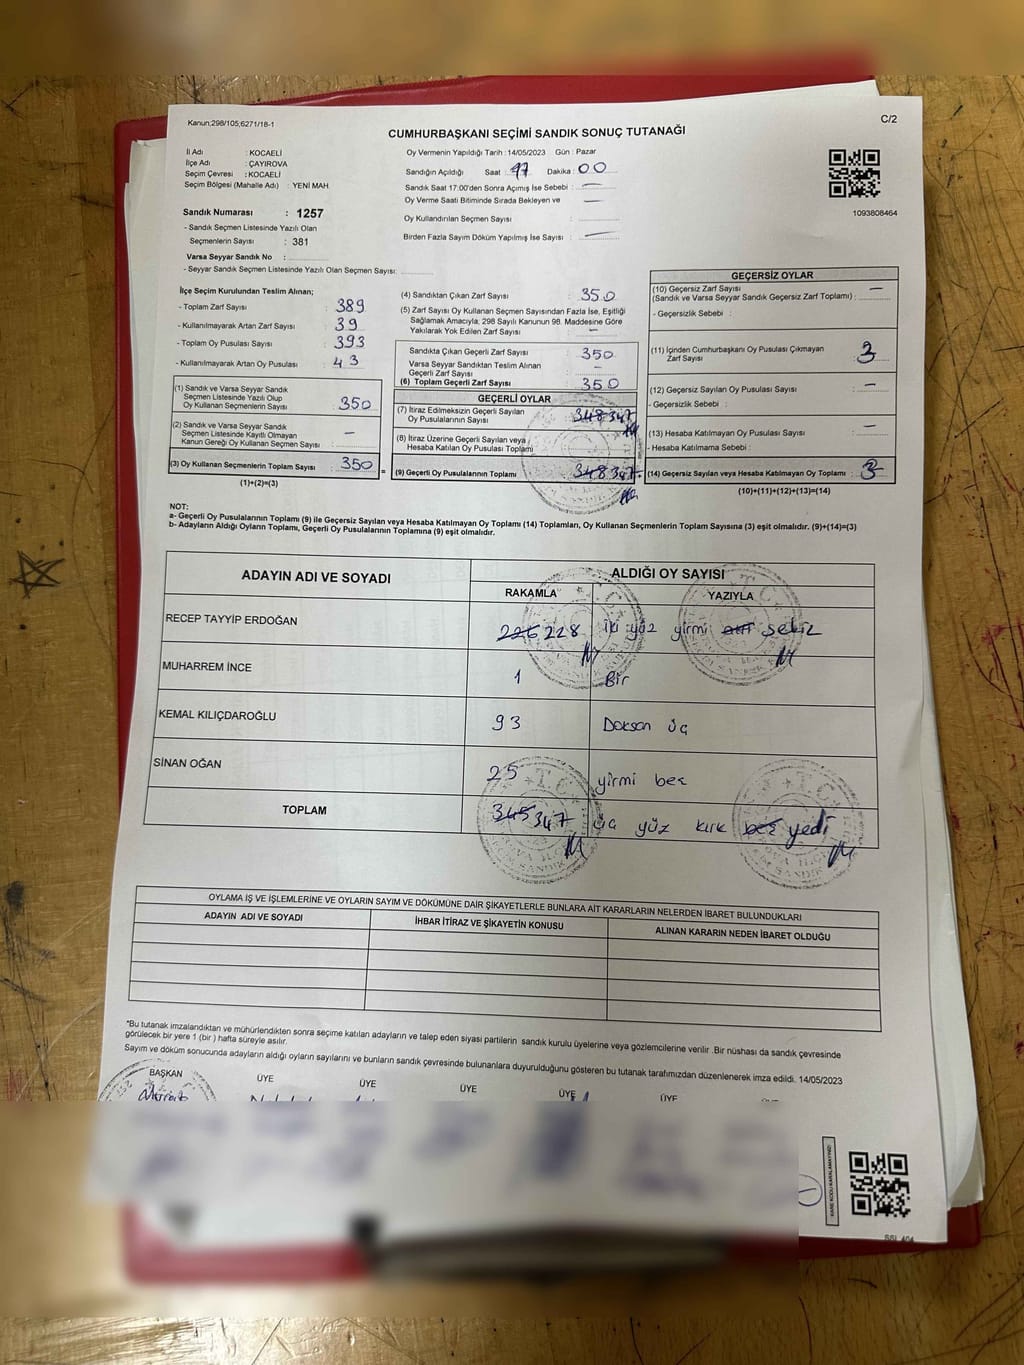 Kanun;298/105;6271/18-1
C/2
CUMHURBAŞKANI SEÇİMİ SANDIK SONUÇ TUTANAĞI
İl Adı : KOCAELİ
İlçe Adı : ÇAYIROVA
Seçim Çevresi : KOCAELİ
Seçim Bölgesi (Mahalle Adı) : YENİ MAH.
Sandık Numarası : 1257
- Sandık Seçmen Listesinde Yazılı Olan
Seçmenlerin Sayısı : 381
Varsa Seyyar Sandık No :
- Seyyar Sandık Seçmen Listesinde Yazılı Olan Seçmen Sayısı:
Oy Vermenin Yapıldığı Tarih : 14/05/2023 Gün : Pazar
Sandığın Açıldığı Saat : 17 Dakika : 00
Sandık Saat 17:00'den Sonra Açımış İse Sebebi : —
Oy Verme Saati Bitiminde Sırada Bekleyen ve —
Oy Kullandırılan Seçmen Sayısı :
Birden Fazla Sayım Döküm Yapılmış İse Sayısı : —
1093808464
İlçe Seçim Kurulundan Teslim Alınan;
- Toplam Zarf Sayısı : 389
- Kullanılmayarak Artan Zarf Sayısı : 39
- Toplam Oy Pusulası Sayısı : 393
- Kullanılmayarak Artan Oy Pusulası : 43
(1) Sandık ve Varsa Seyyar Sandık
Seçmen Listesinde Yazılı Olup
Oy Kullanan Seçmenlerin Sayısı : 350
(2) Sandık ve Varsa Seyyar Sandık
Seçmen Listesinde Kayıtlı Olmayan
Kanun Gereği Oy Kullanan Seçmen Sayısı : —
(3) Oy Kullanan Seçmenlerin Toplam Sayısı : 350 =
(1)+(2)=(3)
(4) Sandıktan Çıkan Zarf Sayısı : 350
(5) Zarf Sayısı Oy Kullanan Seçmen Sayısından Fazla İse, Eşitliği
Sağlamak Amacıyla; 298 Sayılı Kanunun 98. Maddesine Göre
Yakılarak Yok Edilen Zarf Sayısı : —
Sandıkta Çıkan Geçerli Zarf Sayısı : 350
Varsa Seyyar Sandıktan Teslim Alınan
Geçerli Zarf Sayısı : —
(6) Toplam Geçerli Zarf Sayısı : 350
GEÇERLİ OYLAR
(7) İtiraz Edilmeksizin Geçerli Sayılan
Oy Pusulalarının Sayısı : 348 347
(8) İtiraz Üzerine Geçerli Sayılan veya
Hesaba Katılan Oy Pusulası Toplamı :
(9) Geçerli Oy Pusulalarının Toplamı : 348 347
GEÇERSİZ OYLAR
(10) Geçersiz Zarf Sayısı —
(Sandık ve Varsa Seyyar Sandık Geçersiz Zarf Toplamı) :
- Geçersizlik Sebebi :
(11) İçinden Cumhurbaşkanı Oy Pusulası Çıkmayan
Zarf Sayısı : 3
(12) Geçersiz Sayılan Oy Pusulası Sayısı : —
- Geçersizlik Sebebi :
(13) Hesaba Katılmayan Oy Pusulası Sayısı : —
- Hesaba Katılmama Sebebi :
(14) Geçersiz Sayılan veya Hesaba Katılmayan Oy Toplamı : 3
(10)+(11)+(12)+(13)=(14)
NOT:
a- Geçerli Oy Pusulalarının Toplamı (9) ile Geçersiz Sayılan veya Hesaba Katılmayan Oy Toplamı (14) Toplamları, Oy Kullanan Seçmenlerin Toplam Sayısına (3) eşit olmalıdır. (9)+(14)=(3)
b- Adayların Aldığı Oyların Toplamı, Geçerli Oy Pusulalarının Toplamına (9) eşit olmalıdır.
ADAYIN ADI VE SOYADI ALDIĞI OY SAYISI
RAKAMLA YAZIYLA
RECEP TAYYİP ERDOĞAN 226 228 iki yüz yirmi altı sekiz
MUHARREM İNCE 1 Bir
KEMAL KILIÇDAROĞLU 93 Doksan üç
SİNAN OĞAN 25 yirmi beş
TOPLAM 345 347 üç yüz kırk beş yedi
OYLAMA İŞ VE İŞLEMLERİNE VE OYLARIN SAYIM VE DÖKÜMÜNE DAİR ŞİKAYETLERLE BUNLARA AİT KARARLARIN NELERDEN İBARET BULUNDUKLARI
ADAYIN ADI VE SOYADI İHBAR İTİRAZ VE ŞİKAYETİN KONUSU ALINAN KARARIN NEDEN İBARET OLDUĞU
"Bu tutanak imzalandıktan ve mühürlendikten sonra seçime katılan adayların ve talep eden siyasi partilerin sandık kurulu üyelerine veya gözlemcilerine verilir .Bir nüshası da sandık çevresinde
görülecek bir yere 1 (bir ) hafta süreyle asılır.
Sayım ve döküm sonucunda adayların aldığı oyların sayılarını ve bunların sandık çevresinde bulunanlara duyurulduğunu gösteren bu tutanak tarafımızdan düzenlenerek imza edildi. 14/05/2023
BAŞKAN ÜYE ÜYE ÜYE ÜYE ÜYE ÜYE
KARE KODU KARALAMAYINIZ!